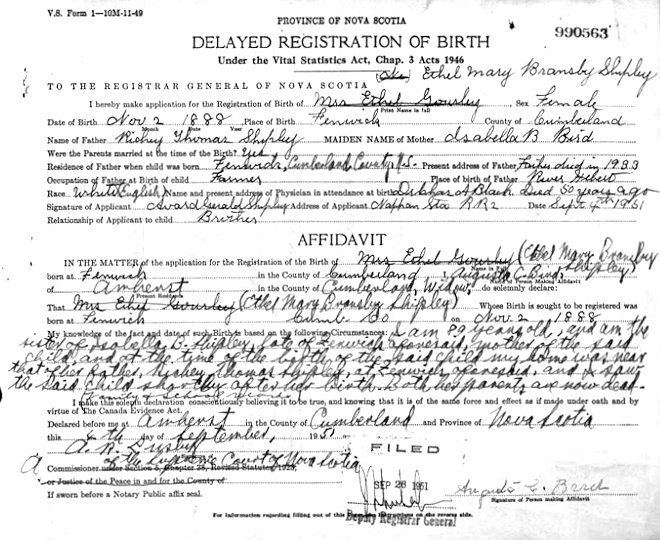 V.S. Form 1—10M-11-49
PROVINCE OF NOVA SCOTIA
990563
DELAYED REGISTRATION OF BIRTH
Under the Vital Statistics Act, Chap. 3 Acts 1946
Ethel Mary Bransby Shipley
TO THE REGISTRAR GENERAL OF NOVA SCOTIA
I hereby make application for the Registration of Birth of Mrs Ethel Gourley Sex Female
Print Name in full
Date of Birth Nov 2 1888 Place of Birth Fenwick County of Cumberland
Month Date Year
Name of Father Richey Thomas Shipley MAIDEN NAME of Mother Isabella B Bird
Were the Parents married at time of the Birth? Yes
Residence of Father when child was born Fenwick, Cumberland County N.S. Present address of Father Father died in 1933
Occupation of Father at Birth of Child Farmer Place of birth of Father River Hebert
Race White English Name and present address of Physician in attendance at birth Black Died 50 years ago
Signature of Applicant Award Gerald Shipley Address of Applicant Nappan Sta RR2 Date Sept 4th 1951
Relationship of Applicant to child Brother
AFFIDAVIT
IN THE MATTER of the application for the Registration of Birth of Mrs Ethel Gourley (Ethel Mary Bransby Shipley)
Name in Full
born at Fenwick in the County of Cumberland I, Augusta C. Bird,
Name of Person Making Affidavit
of Amherst in the County of Cumberland, Widow, do solemnly declare:
Present Residence
That Mrs Ethel Gourley (Ethel Mary Bransby Shipley) Whose Birth is sought to be registered was
born at Fenwick Cumb Co on Nov 2 1888
My knowledge of the fact and date of such Birth is based on the following Circumstances: I am 89 years old, and am the
sister of Isabella B. Shipley, late of Fenwick aforesaid, mother of the said
child, and at the time of the birth of the said child my home was near
that of her father, Richey Thomas Shipley, at Fenwick aforesaid, and I saw
the said child shortly after her birth. Both her parents are now dead.
Family & School
I make this solemn declaration conscientiously believing it to be true, and knowing that it is of the same force and effect as if made under oath and by
virtue of The Canada Evidence Act.
Declared before me at Amherst in the County of Cumberland and Province of Nova Scotia
this day of September, 1951
FILED
A of the Supreme Court of Nova Scotia
A Commissioner under Section 5, Chapter 28, Revised Statutes 1923,
or Justice of the Peace in and for the County of
SEP 26 1951
Augusta C. Bird
Signature of Person making Affidavit
If sworn before a Notary Public affix seal.
Deputy Registrar General
For information regarding filling out of this Form see instructions on the reverse side.